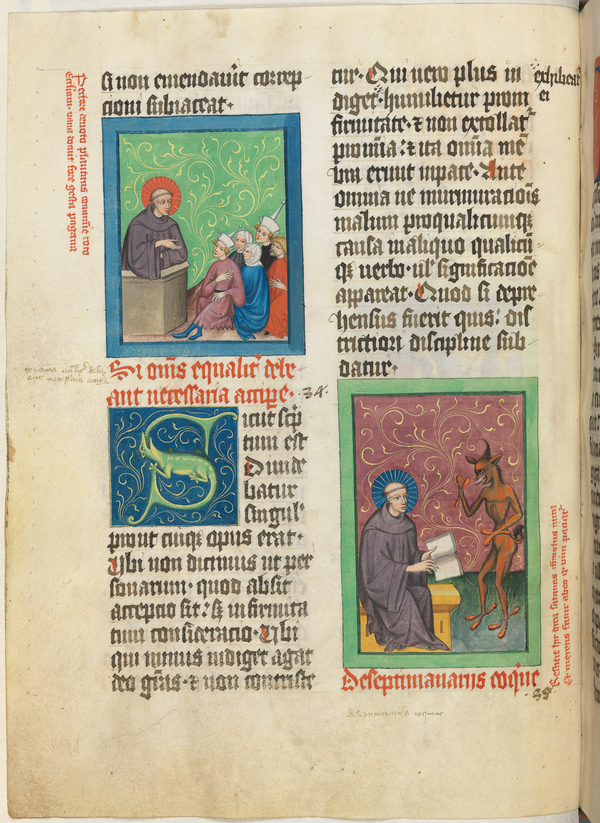 si non emendaverit correp
tioni subiaceat.
Si om̄s equalit̄ debe
ant necessaria accipe. 34.
Sicut scp̄
tum est
Divide
batur
singul̉
prout cuiqꝫ opus erat.
Ubi non dicimus ut per
sonarum. quod absit
acceptio sit: sꝫ infirmita
tum consideracio. Ubi
qui minus indiget agat
deo grās. ⁊ non contriste
tur. Qui vero plus in
diget. humilietur prom
firmitate. ⁊ non extollat̄
pro mīa: ⁊ ita om̄ia mē
bra erunt inpace. Ante
omnia ne murmuracio̅is
malum proqualicumqꝫ
causa in aliquo qualicū
qꝫ verbo. ul̓ significacio̅e
appareat. Quod si depre
hensus fuerit quis: dis
trictiori discipline sub
datur.
exhibeat̄
ei
De septimanariis coq̄ne
35